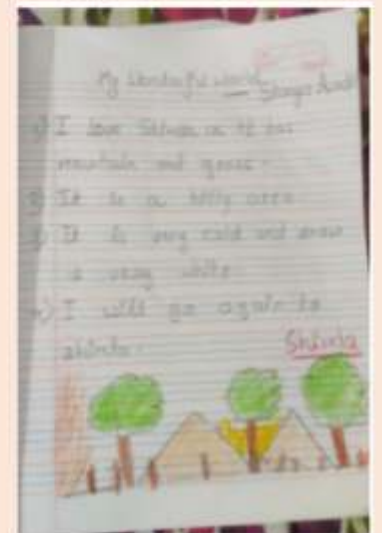 My Wonderful World
1) I love Shimla as it has
mountain and grass.
2) It is a hilly area
3) It is very cold and snow
is very white.
4) I will go again to
shimla.
Shimla